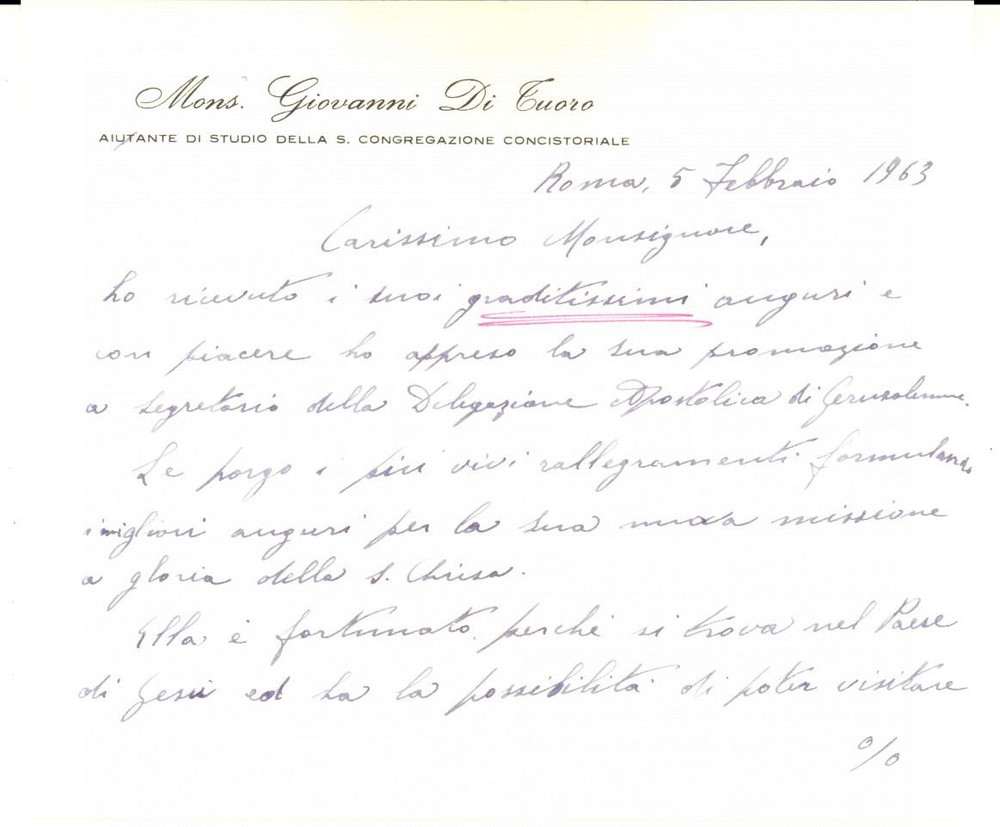 Mons. Giovanni Di Tuoro
AIUTANTE DI STUDIO DELLA S. CONGREGAZIONE CONCISTORIALE
Roma, 5 Febbraio 1963
Carissimo Monsignore,
ho ricevuto i suoi graditissimi auguri e
con piacere ho appreso la sua promozione
a segretario della Delegazione Apostolica di Gerusalemme.
Le porgo i più vivi rallegramenti formulando
i migliori auguri per la sua nuova missione
a gloria della S. Chiesa.
Ella è fortunato perché si trova nel Paese
di Gesù ed ha la possibilità di poter visitare
%